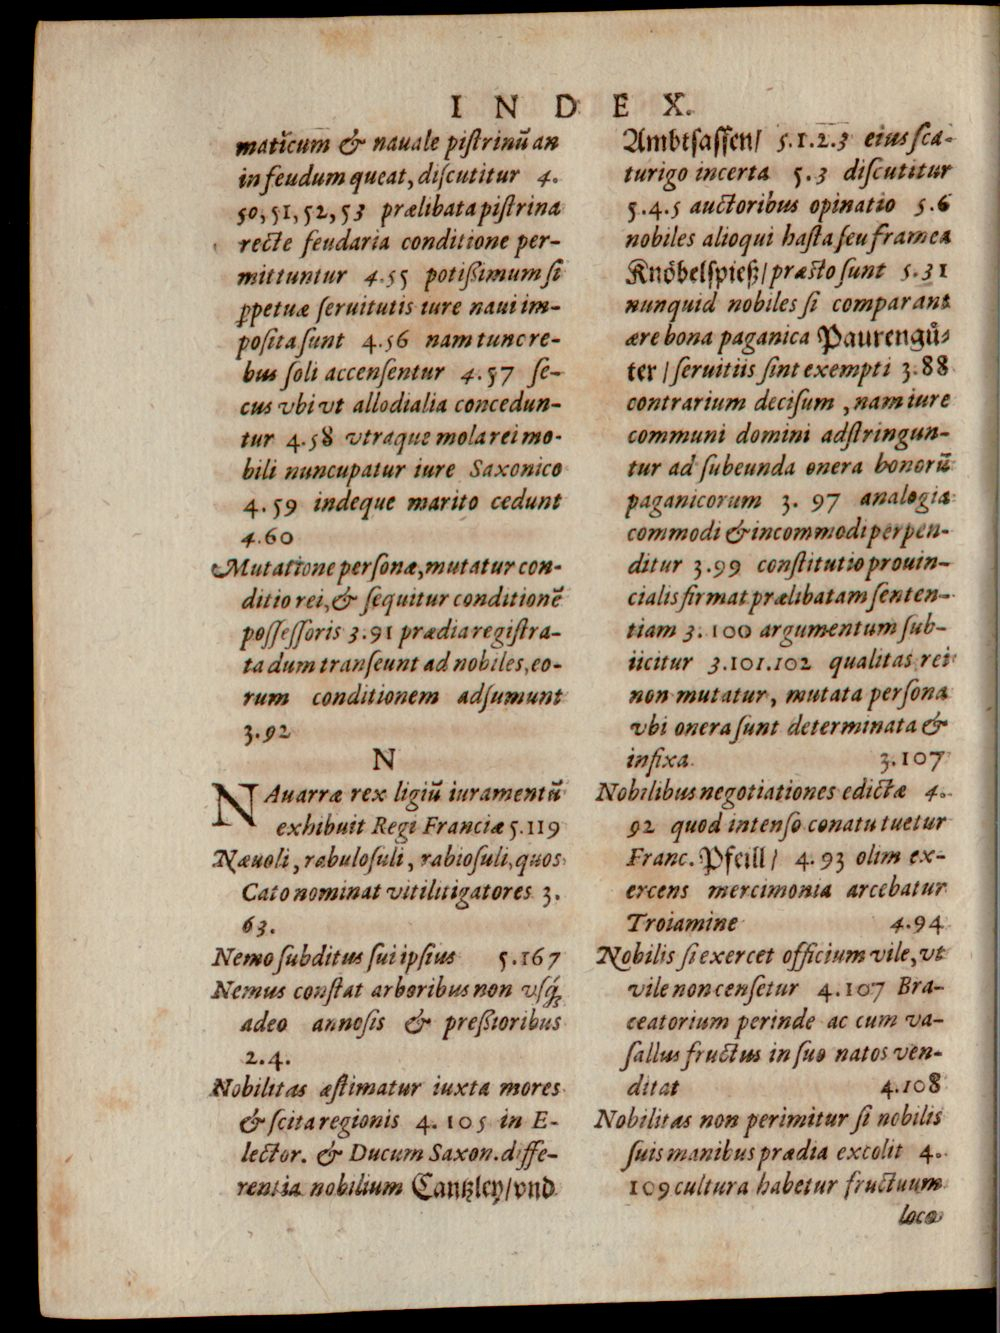 INDEX.
maticum & nauale pistrinũ an
in feudum queat, discutitur 4.
50, 51, 52, 53 prælibata pistrina
recte feudaria conditione per-
mittuntur 4.55 potißimum si
ꝑpetuæ seruitutis iure naui im-
posita sunt 4.56 nam tunc re-
bus soli accensentur 4.57 se-
cus vbi vt allodialia concedun-
tur 4.58 vtraque mola rei mo-
bili nuncupatur iure Saxonico
4.59 indeque marito cedunt
4.60
Mutatione personæ, mutatur con-
ditio rei, & sequitur conditionẽ
possessoris 3.91 prædia registra-
ta dum transeunt ad nobiles, eo-
rum conditionem adsumunt
3.92
N
NAuarræ rex ligiũ iuramentũ
exhibuit Regi Franciæ 5.119
Næuoli, rabulosuli, rabiosuli, quos
Cato nominat vitilitigatores 3.
63.
Nemo subditus sui ipsius 5.167
Nemus constat arboribus non vsq́;
adeo annosis & preßioribus
2.4.
Nobilitas æstimatur iuxta mores
& scita regionis 4.105 in E-
lector. & Ducum Saxon. diffe-
rentia nobilium Cantzley/vnd
Ambtsassen/ 5.1.2.3 eius sca-
turigo incerta 5.3 discutitur
5.4.5 auctoribus opinatio 5.6
nobiles alioqui hasta seu framea
Knöbelspieß/ præsto sunt 5.31
nunquid nobiles si comparant
ære bona paganica Paurengů-
ter / seruitiis sint exempti 3.88
contrarium decisum, nam iure
communi domini adstringun-
tur ad subeunda onera bonorũ
paganicorum 3.97 analogia
commodi & incommodi perpen-
ditur 3.99 constitutio prouin-
cialis firmat prælibatam senten-
tiam 3.100 argumentum sub-
iicitur 3.101.102 qualitas rei
non mutatur, mutata persona
vbi onera sunt determinata &
infixa 3.107
Nobilibus negotiationes edictæ 4.
92 quod intenso conatu tuetur
Franc. Pfeill/ 4.93 olim ex-
ercens mercimonia arcebatur
Troiamine 4.94
Nobilis si exercet officium vile, vt
vile non censetur 4.107 Bra-
ceatorium perinde ac cum va-
sallus fructus in suo natos ven-
ditat 4.108
Nobilitas non perimitur si nobilis
suis manibus prædia excolit 4.
109 cultura habetur fructuum
loco